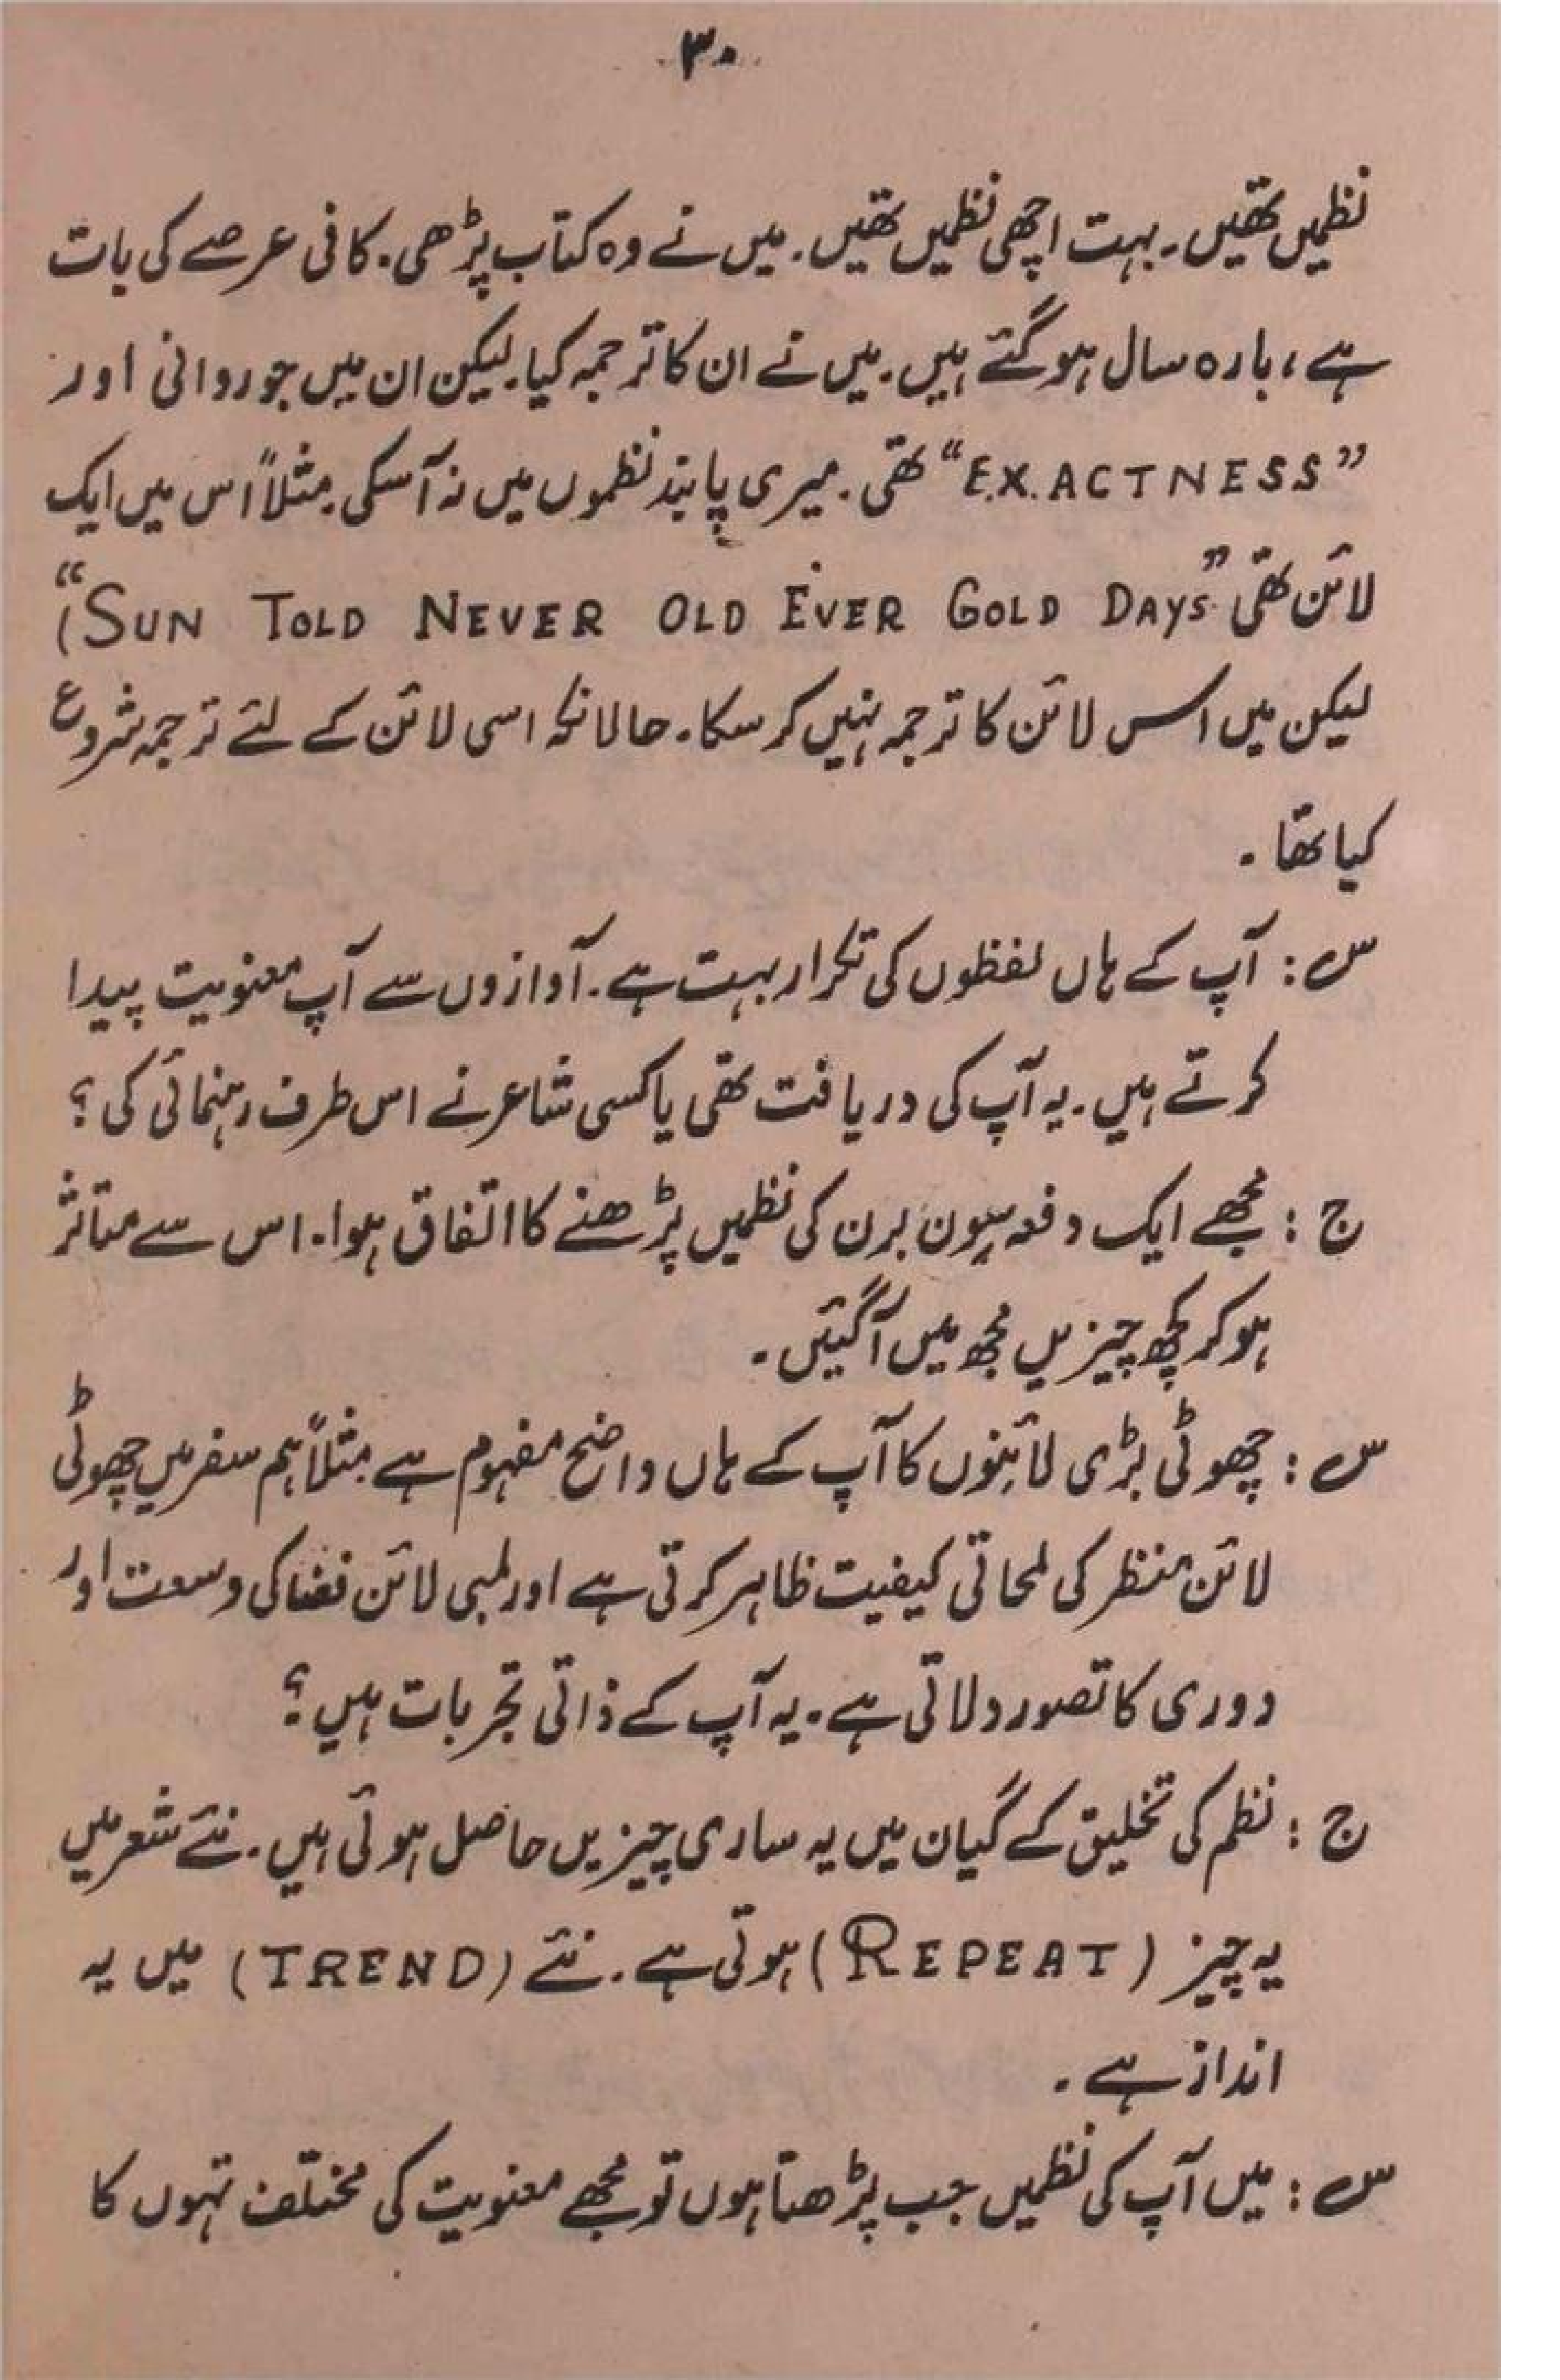 ۳۰
نظمیں تھیں۔ بہت اچھی نظمیں تھیں۔ میں نے وہ کتاب پڑھی۔ کافی عرصے کی بات
ہے، بارہ سال ہو گئے ہیں۔ میں نے ان کا ترجمہ کیا۔ لیکن ان میں جو روانی اور
"EXACTNESS" تھی۔ میری پابند نظموں میں نہ آ سکی۔ مثلاً اس میں ایک
لائن تھی "(SUN TOLD NEVER OLD EVER GOLD DAYS"
لیکن میں اس لائن کا ترجمہ نہیں کر سکا۔ حالانکہ اسی لائن کے لئے ترجمہ شروع
کیا تھا۔
س : آپ کے ہاں لفظوں کی تکرار بہت ہے۔ آوازوں سے آپ معنویت پیدا
کرتے ہیں۔ یہ آپ کی دریافت تھی یا کسی شاعر نے اس طرف رہنمائی کی؟
ج : مجھے ایک دفعہ سون برن کی نظمیں پڑھنے کا اتفاق ہوا۔ اس سے متاثر
ہو کر کچھ چیزیں مجھ میں آ گئیں۔
س : چھوٹی بڑی لائنوں کا آپ کے ہاں واضح مفہوم ہے مثلاً ہم سفر میں چھوٹی
لائن منظر کی لمحاتی کیفیت ظاہر کرتی ہے اور لمبی لائن فضا کی وسعت اور
دوری کا تصور دلاتی ہے۔ یہ آپ کے ذاتی تجربات ہیں؟
ج : نظم کی تخلیق کے گیان میں یہ ساری چیزیں حاصل ہوتی ہیں۔ نئے شعر میں
یہ چیز (REPEAT) ہوتی ہے۔ نئے (TREND) میں یہ
انداز ہے۔
س : میں آپ کی نظمیں جب پڑھتا ہوں تو مجھے معنویت کی مختلف تہوں کا